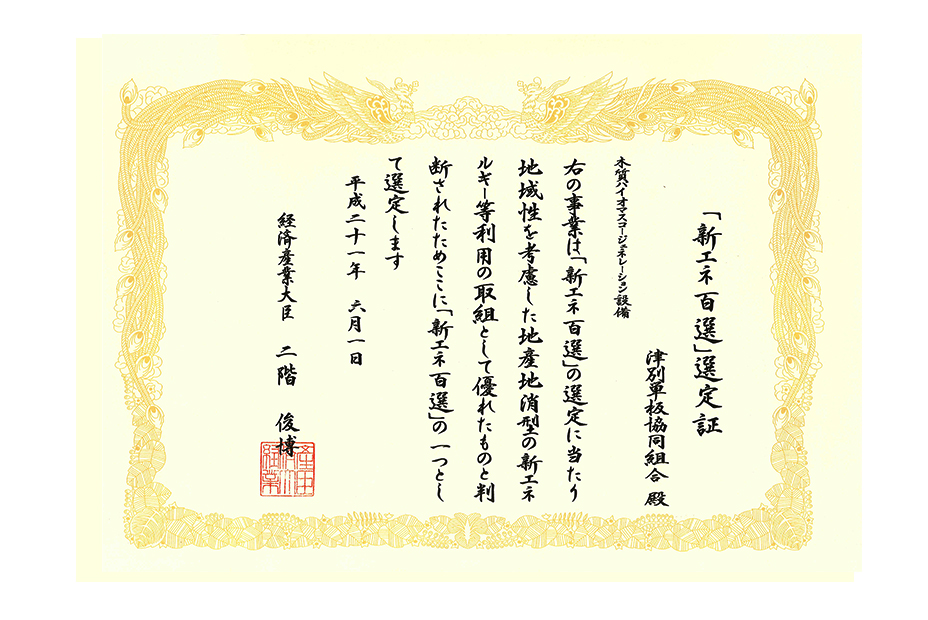 「新エネ百選」選定証
津別単板協同組合 殿
木質バイオマスコージェネレーション設備
右の事業は「新エネ百選」の選定に当たり
地域性を考慮した地産地消型の新エネ
ルギー等利用の取組として優れたものと判
断されたためここに「新エネ百選」の一つとし
て選定します
平成二十一年 六月一日
経済産業大臣 二階 俊博